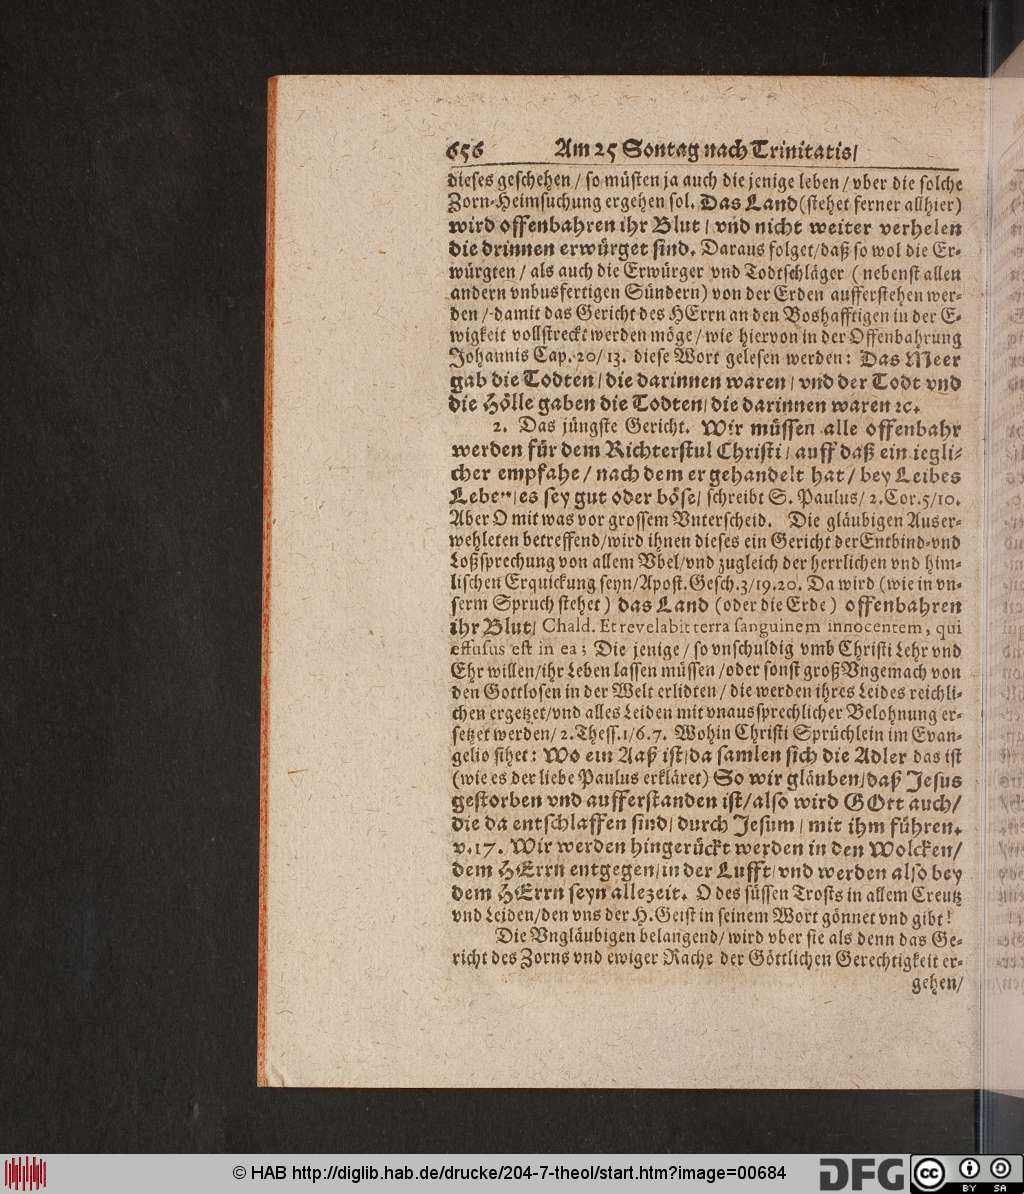 656 Am 25 Sontag nach Trinitatis/
dieses geschehen / so müsten ja auch die jenige leben / vber die solche
Zorn-Heimsuchung ergehen sol. Das Land (stehet ferner allhier)
wird offenbahren ihr Blut / vnd nicht weiter verhelen
die drinnen erwürget sind. Daraus folget/daß so wol die Er-
würgten / als auch die Erwürger vnd Todtschläger ( nebenst allen
andern vnbusfertigen Sündern) von der Erden aufferstehen wer-
den / damit das Gericht des HErrn an den Boshafftigen in der E-
wigkeit vollstreckt werden möge / wie hiervon in der Offenbahrung
Johannis Cap. 20/ 13. diese Wort gelesen werden: Das Meer
gab die Todten / die darinnen waren / vnd der Todt vnd
die Hölle gaben die Todten/ die darinnen waren ꝛc.
2. Das jüngste Gericht. Wir müssen alle offenbahr
werden für dem Richterstul Christi / auff daß ein iegli-
cher empfahe / nach dem er gehandelt hat / bey Leibes
Leben/ es sey gut oder böse/ schreibt S. Paulus/ 2. Cor. 5/10.
Aber O mit was vor grossem Vnterscheid. Die gläubigen Auser-
wehleten betreffend/wird ihnen dieses ein Gericht der Entbind-vnd
Loßsprechung von allem Vbel/vnd zugleich der herrlichen vnd him-
lischen Erquickung seyn/Apost. Gesch. 3/19. 20. Da wird (wie in vn-
serm Spruch stehet) das Land (oder die Erde) offenbahren
ihr Blut/ Chald. Et revelabit terra sanguinem innocentem, qui
effusus est in ea; Die jenige / so vnschuldig vmb Christi Lehr vnd
Ehr willen/ihr Leben lassen müssen /oder sonst groß Vngemach von
den Gottlosen in der Welt erlidten / die werden ihres Leides reichli-
chen ergetzet/vnd alles Leiden mit vnaussprechlicher Belohnung er-
setzet werden/ 2. Thess. 1/6. 7. Wohin Christi Sprüchlein im Evan-
gelio sihet: Wo ein Aaß ist/da samlen sich die Adler das ist
(wie es der liebe Paulus erkläret) So wir gläuben/daß Jesus
gestorben vnd aufferstanden ist/also wird GOtt auch/
die da entschlaffen sind/ durch Jesum / mit ihm führen.
v. 17. Wir werden hingerückt werden in den Wolcken/
dem HErrn entgegen/in der Lufft/ vnd werden also bey
dem HErrn seyn allezeit. O des süssen Trosts in allem Creutz
vnd Leiden/den vns der H. Geist in seinem Wort gönnet vnd gibt!
Die Vngläubigen belangend/ wird vber sie als denn das Ge-
richt des Zorns vnd ewiger Rache der Göttlichen Gerechtigkeit er-
gehen/
© HAB http://diglib.hab.de/drucke/204-7-theol/start.htm?image=00684
DFG
cc BY SA